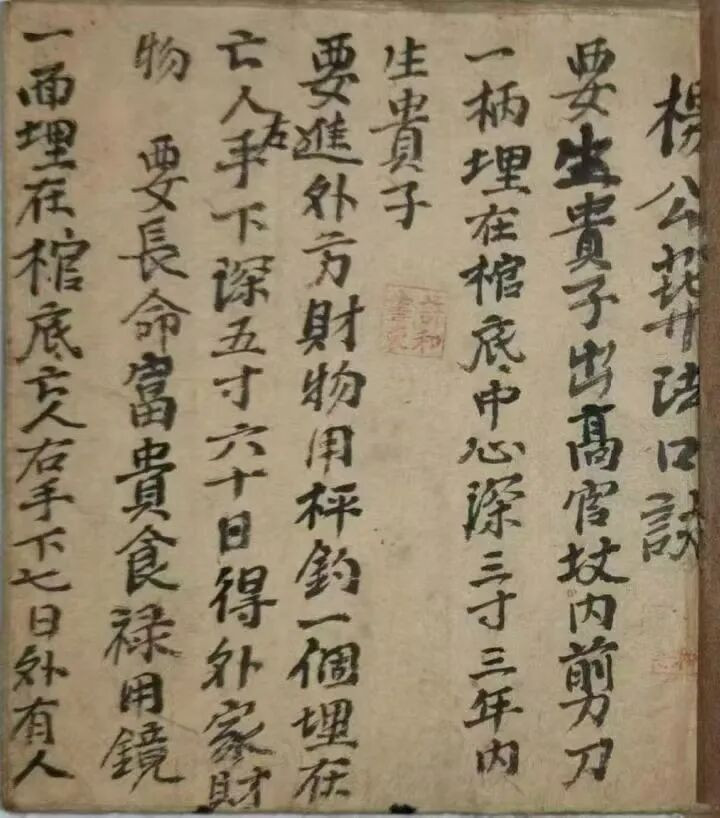 楊公葬法口訣
要生貴子出高官坟内剪刀
一柄埋在棺底中心深三寸三年内
生貴子
要進外方財物用秤鈎一個埋在
亡人右手下深五寸六十日得外家財
物 要長命富貴食禄用鏡
一面埋在棺底亡人右手下七日外有人